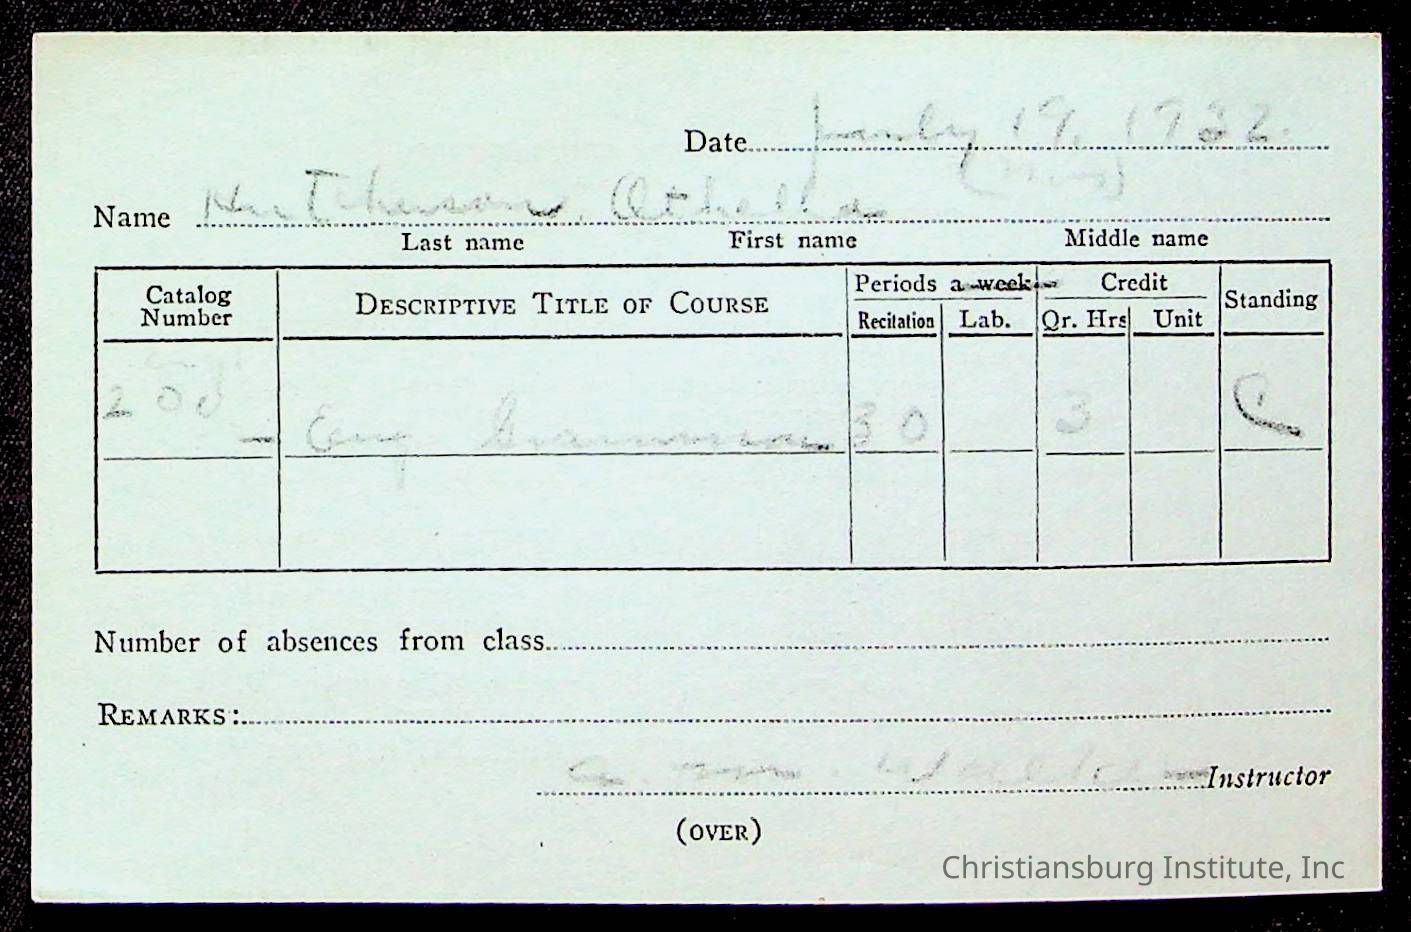 Date July 19, 1932.
(Mrs)
Name Hutcherson, Othella
Last name First name Middle name
Catalog Number DESCRIPTIVE TITLE OF COURSE Periods a week Credit Standing
Recitation Lab. Qr. Hrs Unit
Eng
200 - Eng Grammar 30 3 C
Number of absences from class
REMARKS:
Instructor
(OVER)
Christiansburg Institute, Inc